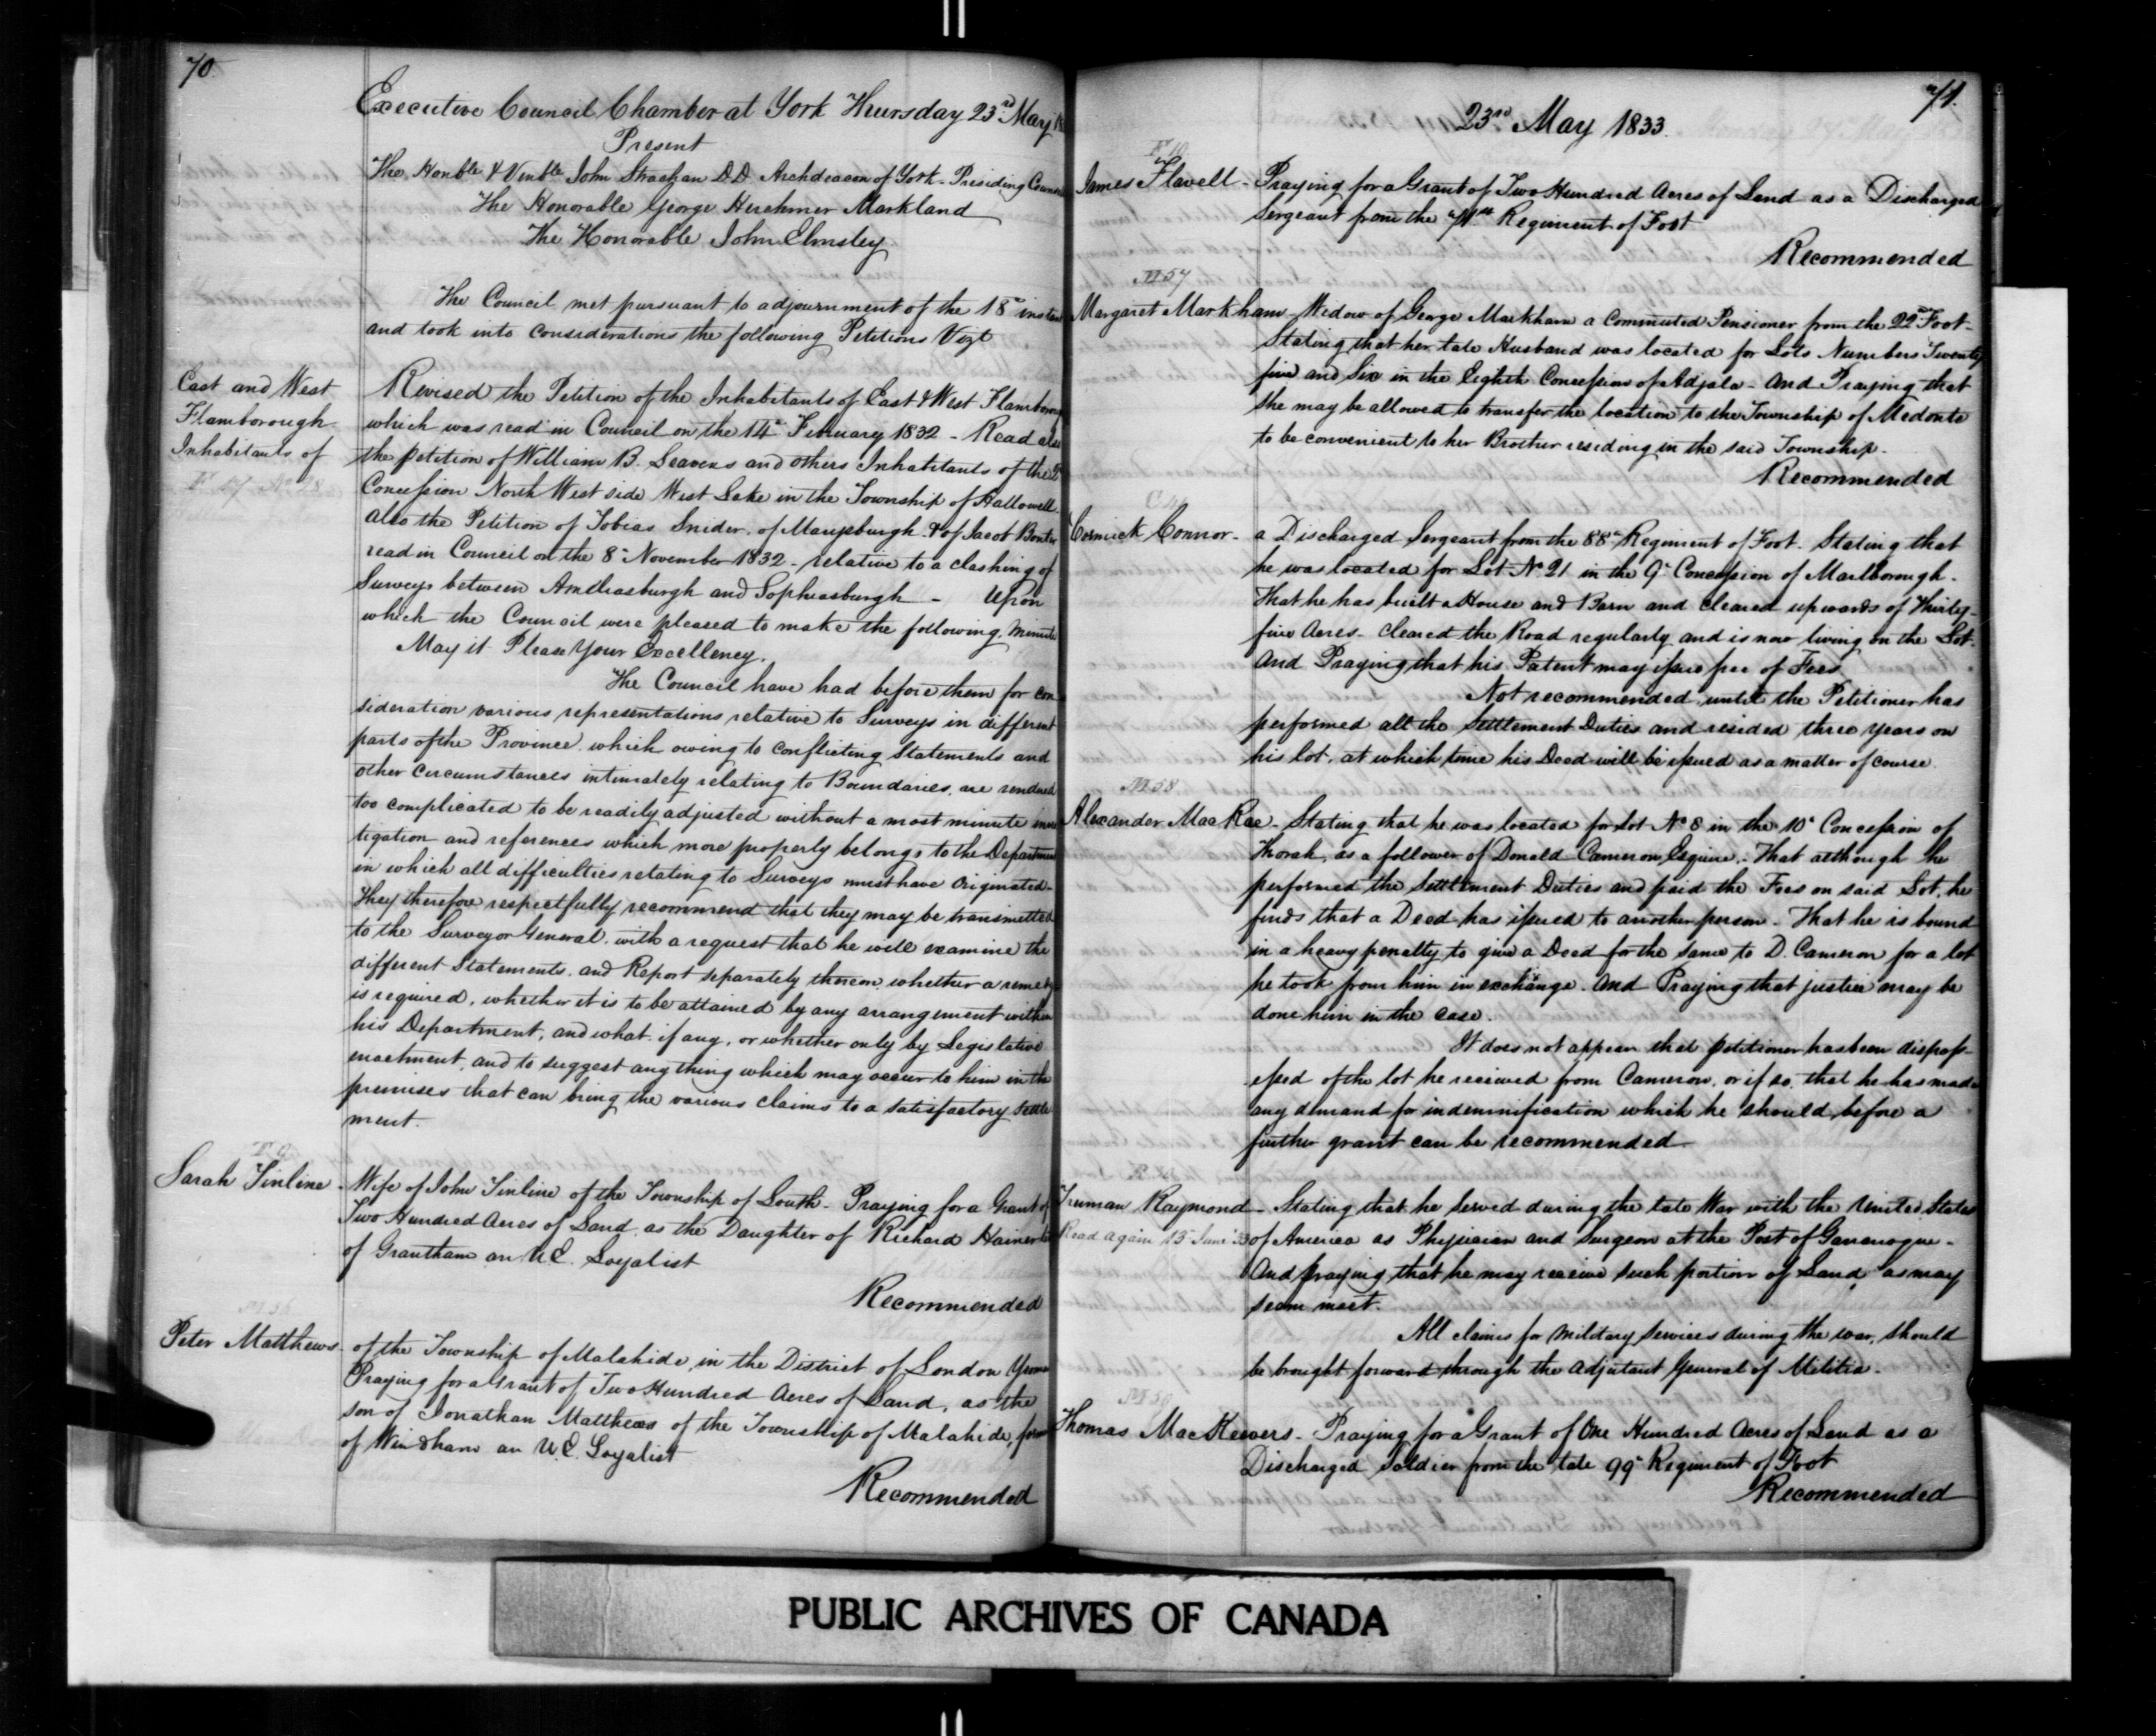 70.
Executive Council Chamber at York Thursday 23rd May
Present
The Honble & Venble John Strachan D.D. Archdeacon of York. Presiding
The Honorable George Herchmer Markland
The Honorable John Elmsley
The Council met pursuant to adjournment of the 18th instant
and took into considerations the following Petitions Vizt
East and West
Flamborough
Inhabitants of
F 17 No 28
Revised the Petition of the Inhabitants of East & West Flamborough
which was read in Council on the 14th February 1832 - Read also
the petition of William B. Seavens and others Inhabitants of the
Concession North West side West Lake in the Township of Hallowell
also the Petition of Tobias Snider, of Marysburgh & of Jacob Bonter
read in Council on the 8th November 1832 - relative to a clashing of
Surveys between Ameliasburgh and Sophiasburgh - Upon
which the Council were pleased to make the following Minute
May it Please Your Excellency.
The Council have had before them for con
sideration various representations relative to Surveys in different
parts of the Province which owing to conflicting Statements and
other circumstances intimately relating to Boundaries, are rendered
too complicated to be readily adjusted without a most minute inves
tigation and references which more properly belongs to the Department
in which all difficulties relating to Surveys must have originated.
They therefore respectfully recommend that they may be transmitted
to the Surveyor General, with a request that he will examine the
different Statements, and Report separately thereon, whether a remedy
is required, whether it is to be attained by any arrangement within
his Department, and what, if any, or whether only by Legislative
enactment, and to suggest any thing which may occur to him in the
premises that can bring the various claims to a satisfactory settle
ment.
Sarah Tinline - Wife of John Tinline of the Township of Louth - Praying for a Grant of
Two Hundred Acres of Land as the Daughter of Richard Hainer
of Grantham an U.E. Loyalist
Recommended
Peter Matthews - of the Township of Malahide, in the District of London Yeoman
Praying for a Grant of Two Hundred Acres of Land, as the
son of Jonathan Matthews of the Township of Malahide,
of Windham an U.E. Loyalist
Recommended
71.
23rd May 1833.
F 10
James Flavell - Praying for a Grant of Two Hundred Acres of Land as a Discharged
Sergeant from the 71st Regiment of Foot
Recommended
M 57
Margaret Markham - Widow of George Markham a Commuted Pensioner from the 22nd Foot -
Stating that her late Husband was located for Lots Numbers Twenty
five and Six in the Eighth Concession of Adjala - And Praying that
she may be allowed to transfer the location to the Township of Medonte
to be convenient to her Brother residing in the said Township -
Recommended
Cormick Connor - a Discharged Sergeant from the 88th Regiment of Foot. Stating that
he was located for Lot No 21 in the 9th Concession of Marlborough -
That he has built a House and Barn and cleared upwards of Thirty-
five Acres - cleared the Road regularly and is now living on the Lot -
And Praying that his Patent may issue free of Fees
Not recommended, until the Petitioner has
performed all the Settlement Duties and resided three years on
his lot, at which time his Deed will be issued as a matter of course
M 58
Alexander Mac Rae - Stating that he was located for Lot No 8 in the 10th Concession of
Thorah, as a follower of Donald Cameron Esquire. - That although he
performed the Settlement Duties and paid the Fees on said Lot, he
finds that a Deed has issued to another person - That he is bound
in a heavy penalty to give a Deed for the same to D. Cameron for a lot
he took from him in exchange. And Praying that justice may be
done him in the case.
It does not appear that petitioner has been disposs-
essed of the lot he received from Cameron, or if so, that he has made
any demand for indemnification which he should, before a
further grant can be recommended
Truman Raymond - Stating that he served during the late War with the United States
Read again 13th June 33 of America as Physician and Surgeon at the Post of Gananoque -
And praying that he may receive such portion of Land as may
seem meet.
All claims for Military Services during the war, should
be brought forward through the Adjutant General of Militia.
M 59
Thomas MacKeevers - Praying for a Grant of One Hundred Acres of Land as a
Discharged Soldier from the late 99th Regiment of Foot
Recommended
PUBLIC ARCHIVES OF CANADA